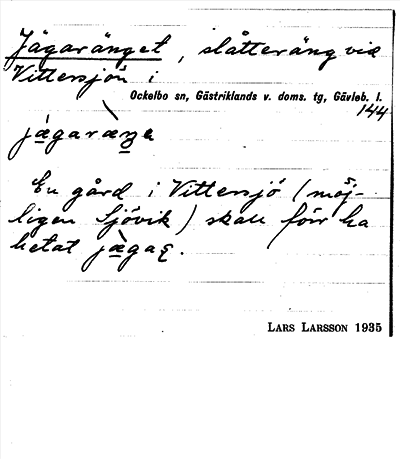 Jägaränget, slåtteräng vid
Vittersjön i
Ockelbo sn, Gästriklands v. doms. tg, Gävleb. l.
144
En gård i Vittersjö (möj-
ligen Sjövik) skall förr ha
hetat
LARS LARSSON 1935